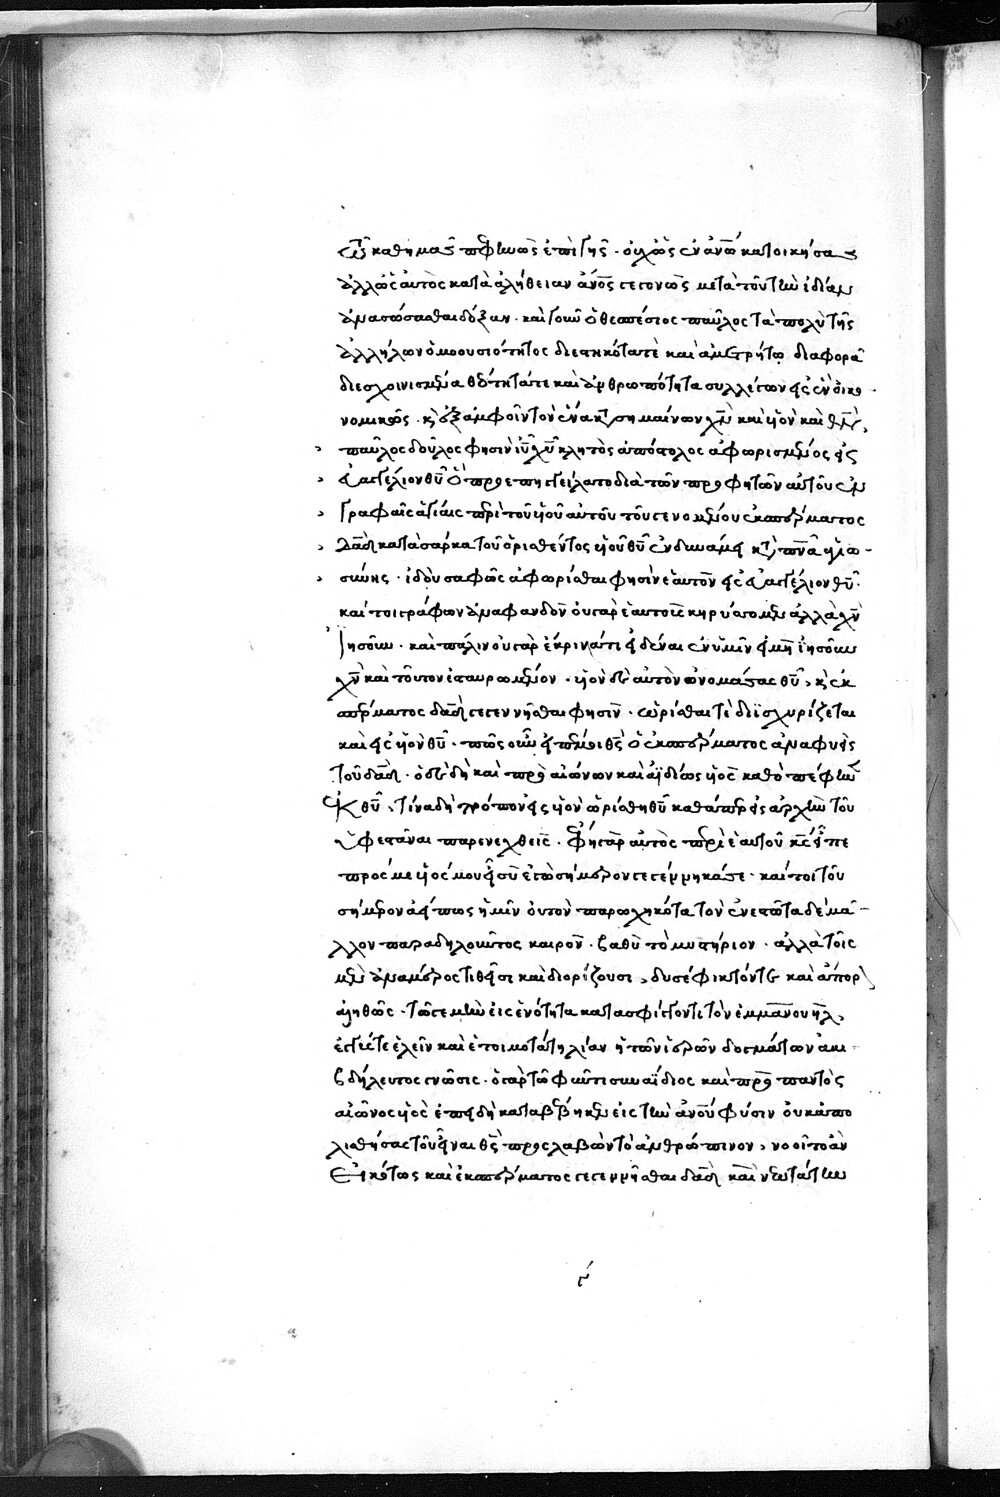 ὡς καθ' ἡμᾶς πεφηνὼς ἐπὶ γῆς · οὐ ψιλῶς ἐν ἀνῶ κατοικήσας
ἀλλ' ὡς αὐτὸς κατὰ ἀλήθειαν ἄνος γεγονὼς μετὰ τοῦ τὴν ἰδίαν
ἀνασώσασθαι δόξαν · καὶ γοῦν ὁ θεσπέσιος παῦλος τὰ πολὺ τῆς
ἀλλήλων ὁμοουσιότητος διεστηκότα τὲ καὶ ἀμετρήτω διαφορᾶ
διεσχοινισμένα θεότητά τε καὶ ἀνθρωπότητα συλλέγων εἰς ἓν οἰκο
νομικῶς · κὶ ἐξ ἀμφοῖν τὸν ἕνα κτ σημαίνων χν καὶ υἱὸν καὶ θν,
παῦλος δοῦλος φησὶν ιυ χυ κλητὸς ἀπόστολος ἀφωρισμένος εἰς
εὐαγγέλιον θυ ὃ προεπηγγείλατο διὰ τῶν προφητῶν αὐτοῦ ἐν
γραφαῖς ἁγίαις περὶ τοῦ υἱοῦ αὐτοῦ τοῦ γενομένου ἐκ σπέρματος
δαδ κατὰ σάρκα τοῦ ὁρισθέντος υἱοῦ θυ ἐν δυνάμει κτ πνα ἁγιω
σύνης · ἰδοὺ σαφῶς ἀφωρίσθαι φησὶν ἑαυτὸν εἰς εὐαγγέλιον θυ ·
καί τοι γράφων ἀναφανδὸν οὐ γὰρ ἑαυτοὺς κηρύσσομεν ἀλλὰ χν
Ἰησοῦν · καὶ πάλιν οὐ γὰρ ἔκρινά τι εἰδέναι ἐν ὑμῖν εἰ μὴ ἰησοῦν
χν καὶ τοῦτον ἐσταυρωμένον · υἱὸν δὲ αὐτὸν ὀνομάσας θυ, κὶ ἐκ
σπέρματος δαδ γεγεννῆσθαι φησὶν · ὡρίσθαι τὲ διϊσχυρίζεται
καὶ εἰς υἱὸν θυ · πῶς οὖν εἰπέ μοι θς ὁ ἐκ σπέρματος ἀναφυεὶς
τοῦ δαδ · ὁ δὲ δὴ καὶ πρὸ αἰώνων καὶ ἀϊδίως υἱὸς καθὸ πέφηνεν
ἐκ θυ, τίνα δὴ τρόπον εἰς υἱὸν ὡρίσθη θυ καθάπερ εἰς ἀρχὴν τοῦ
ὑφεστάναι παρενεχθεὶς · ἔφη γὰρ αὐτὸς περὶ ἑαυτοῦ κς εἶπε
πρός με υἱός μου εἶ σὺ ἐγὼ σήμερον γεγέννηκά σε · καί τοι τοῦ
σήμερον ἀεί πως ἡμῖν οὐ τὸν παρωχηκότα τὸν ἐνεστῶτα δὲ μᾶ
λλον παραδηλοῦντος καιρὸν · βαθὺ τὸ μυστήριον · ἀλλὰ τοῖς
μὲν ἀνὰ μέρος τιθεῖσι καὶ διορίζουσι, δυσέφικτόν τε καὶ ἄπορον
ἀληθῶς · τῶ γε μὴν εἰς ἑνότητα κατασφίγγοντι τὸν ἐμμανουὴλ,
ἐγγύς τε ἑλεῖν καὶ ἑτοιμοτάτη λίαν ἡ τῶν ἱερῶν δογμάτων ἀκι
βδήλευτος γνῶσις · ὁ γὰρ τῶ φύσαντι συναΐδιος καὶ πρὸ παντὸς
αἰῶνος υἱὸς ἐπειδὴ καταβέβηκεν εἰς τὴν ἀνου φύσιν οὐκ ἀπο
λισθήσας τοῦ εἶναι θς προσλαβὼν τὸ ἀνθρώπινον, νοοῖτο ἂν
Εἰκότως καὶ ἐκ σπέρματος γεγεννῆσθαι δαδ καὶ νεωτάτην